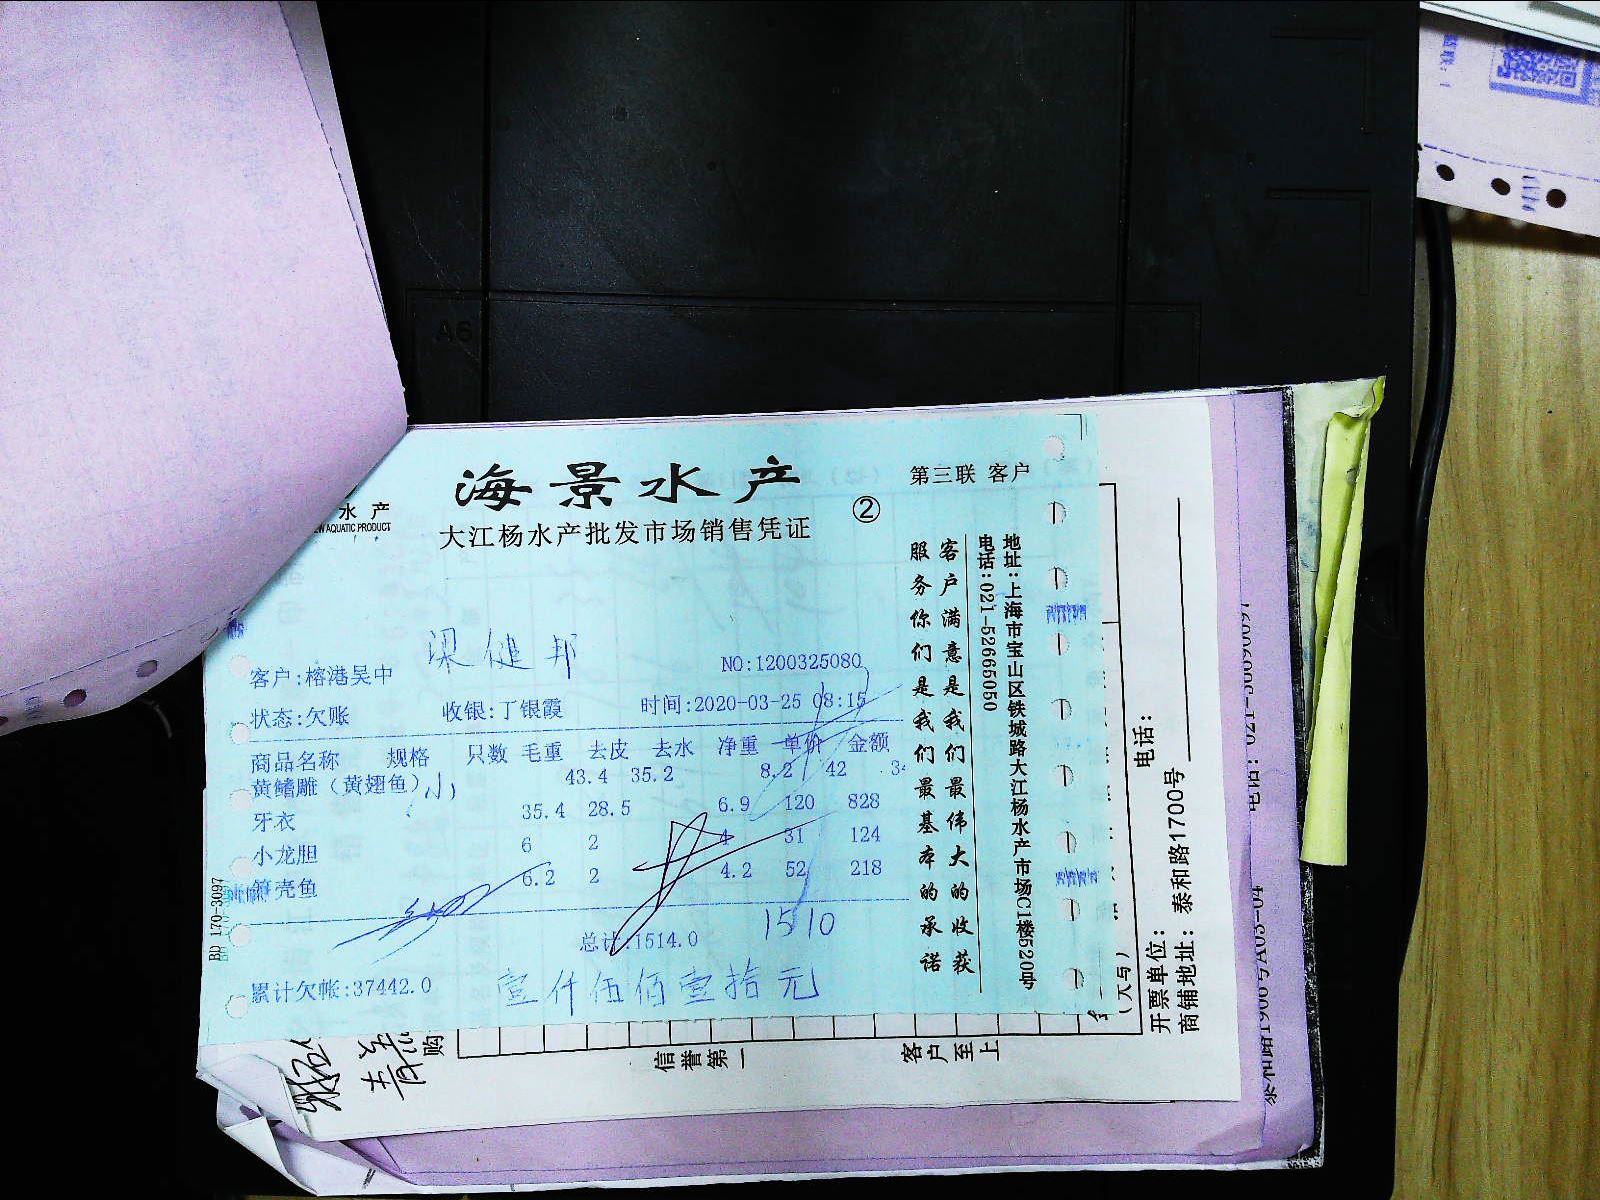 海景水产
第三联 客户
水产
EW AQUATIC PRODUCT
大江杨水产批发市场销售凭证
②
梁健邦
客户:榕港吴中
NO:1200325080
状态:欠账 收银:丁银霞 时间:2020-03-25 08:15
商品名称 规格 只数 毛重 去皮 去水 净重 单价 金额
黄鳍雕（黄翅鱼）小 43.4 35.2 8.2 42 34
牙衣 35.4 28.5 6.9 120 828
小龙胆 6 2 4 31 124
壳鱼 6.2 2 4.2 52 218
总计:1514.0
1510
累计欠帐:37442.0
壹仟伍佰壹拾元
BD 170-3097
客户满意是我们最伟大的收获
服务你们是我们最基本的承诺
地址:上海市宝山区铁城路大江杨水产市场C1楼520号
电话:021-52665050
电话:
开票单位:
商铺地址: 泰和路1700号
信誉第一
客户至上
购
A6